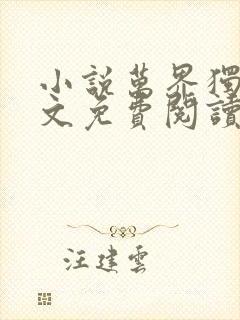 小說萬界獨
文免費閱讀
汪建雲